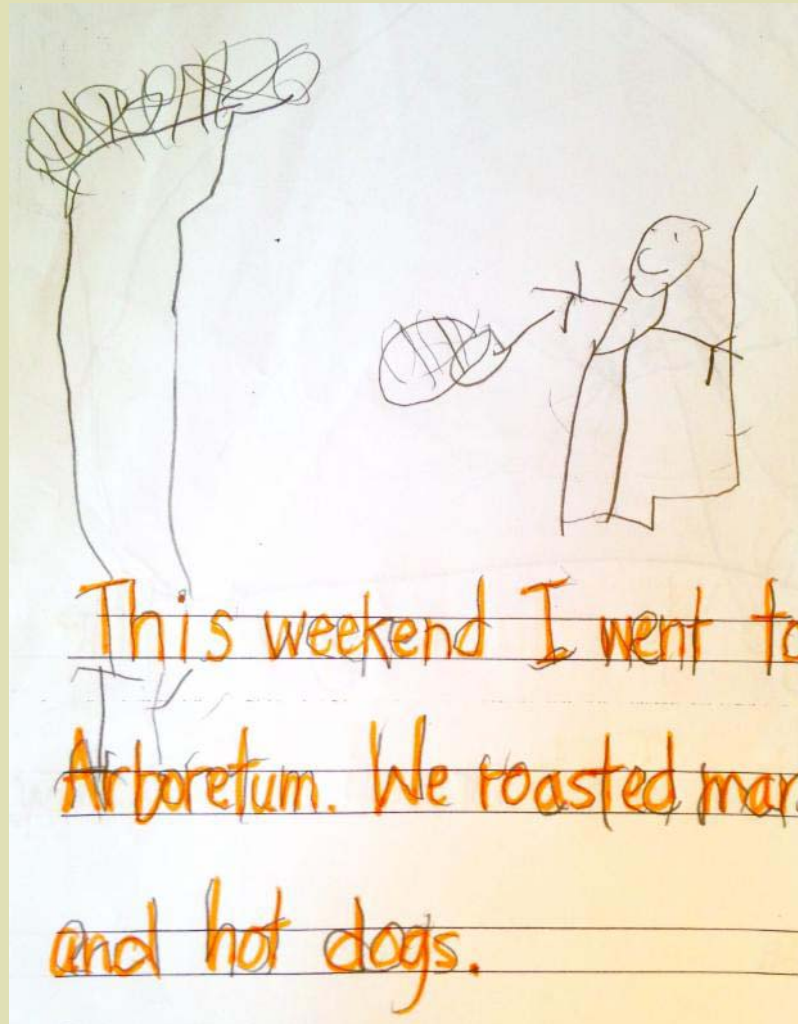 This weekend I went to
Arboretum. We roasted mar
and hot dogs.